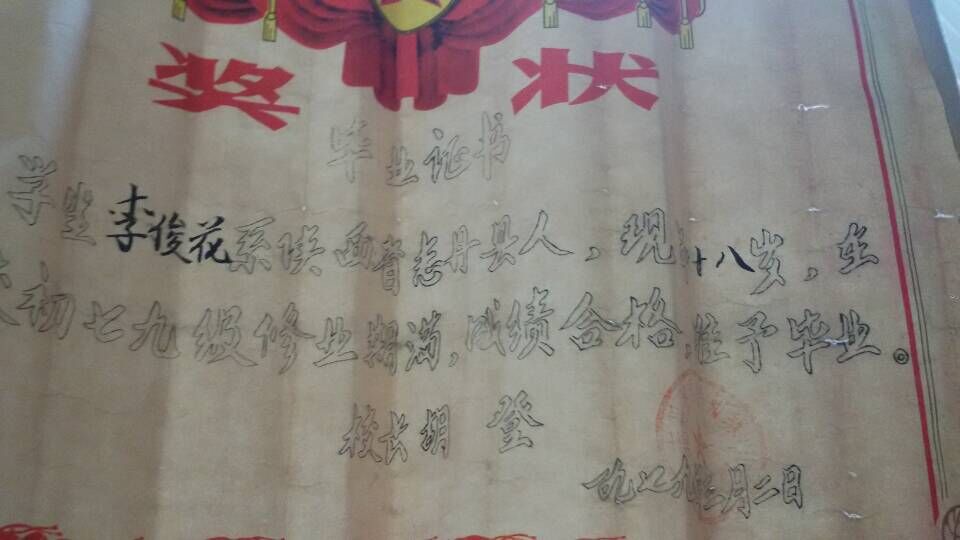 奖状
毕业证书
学生李俊花系陕西省志丹县人，现十八岁，在
初七九级修业期满，成绩合格准予毕业。
校长胡登
月二日